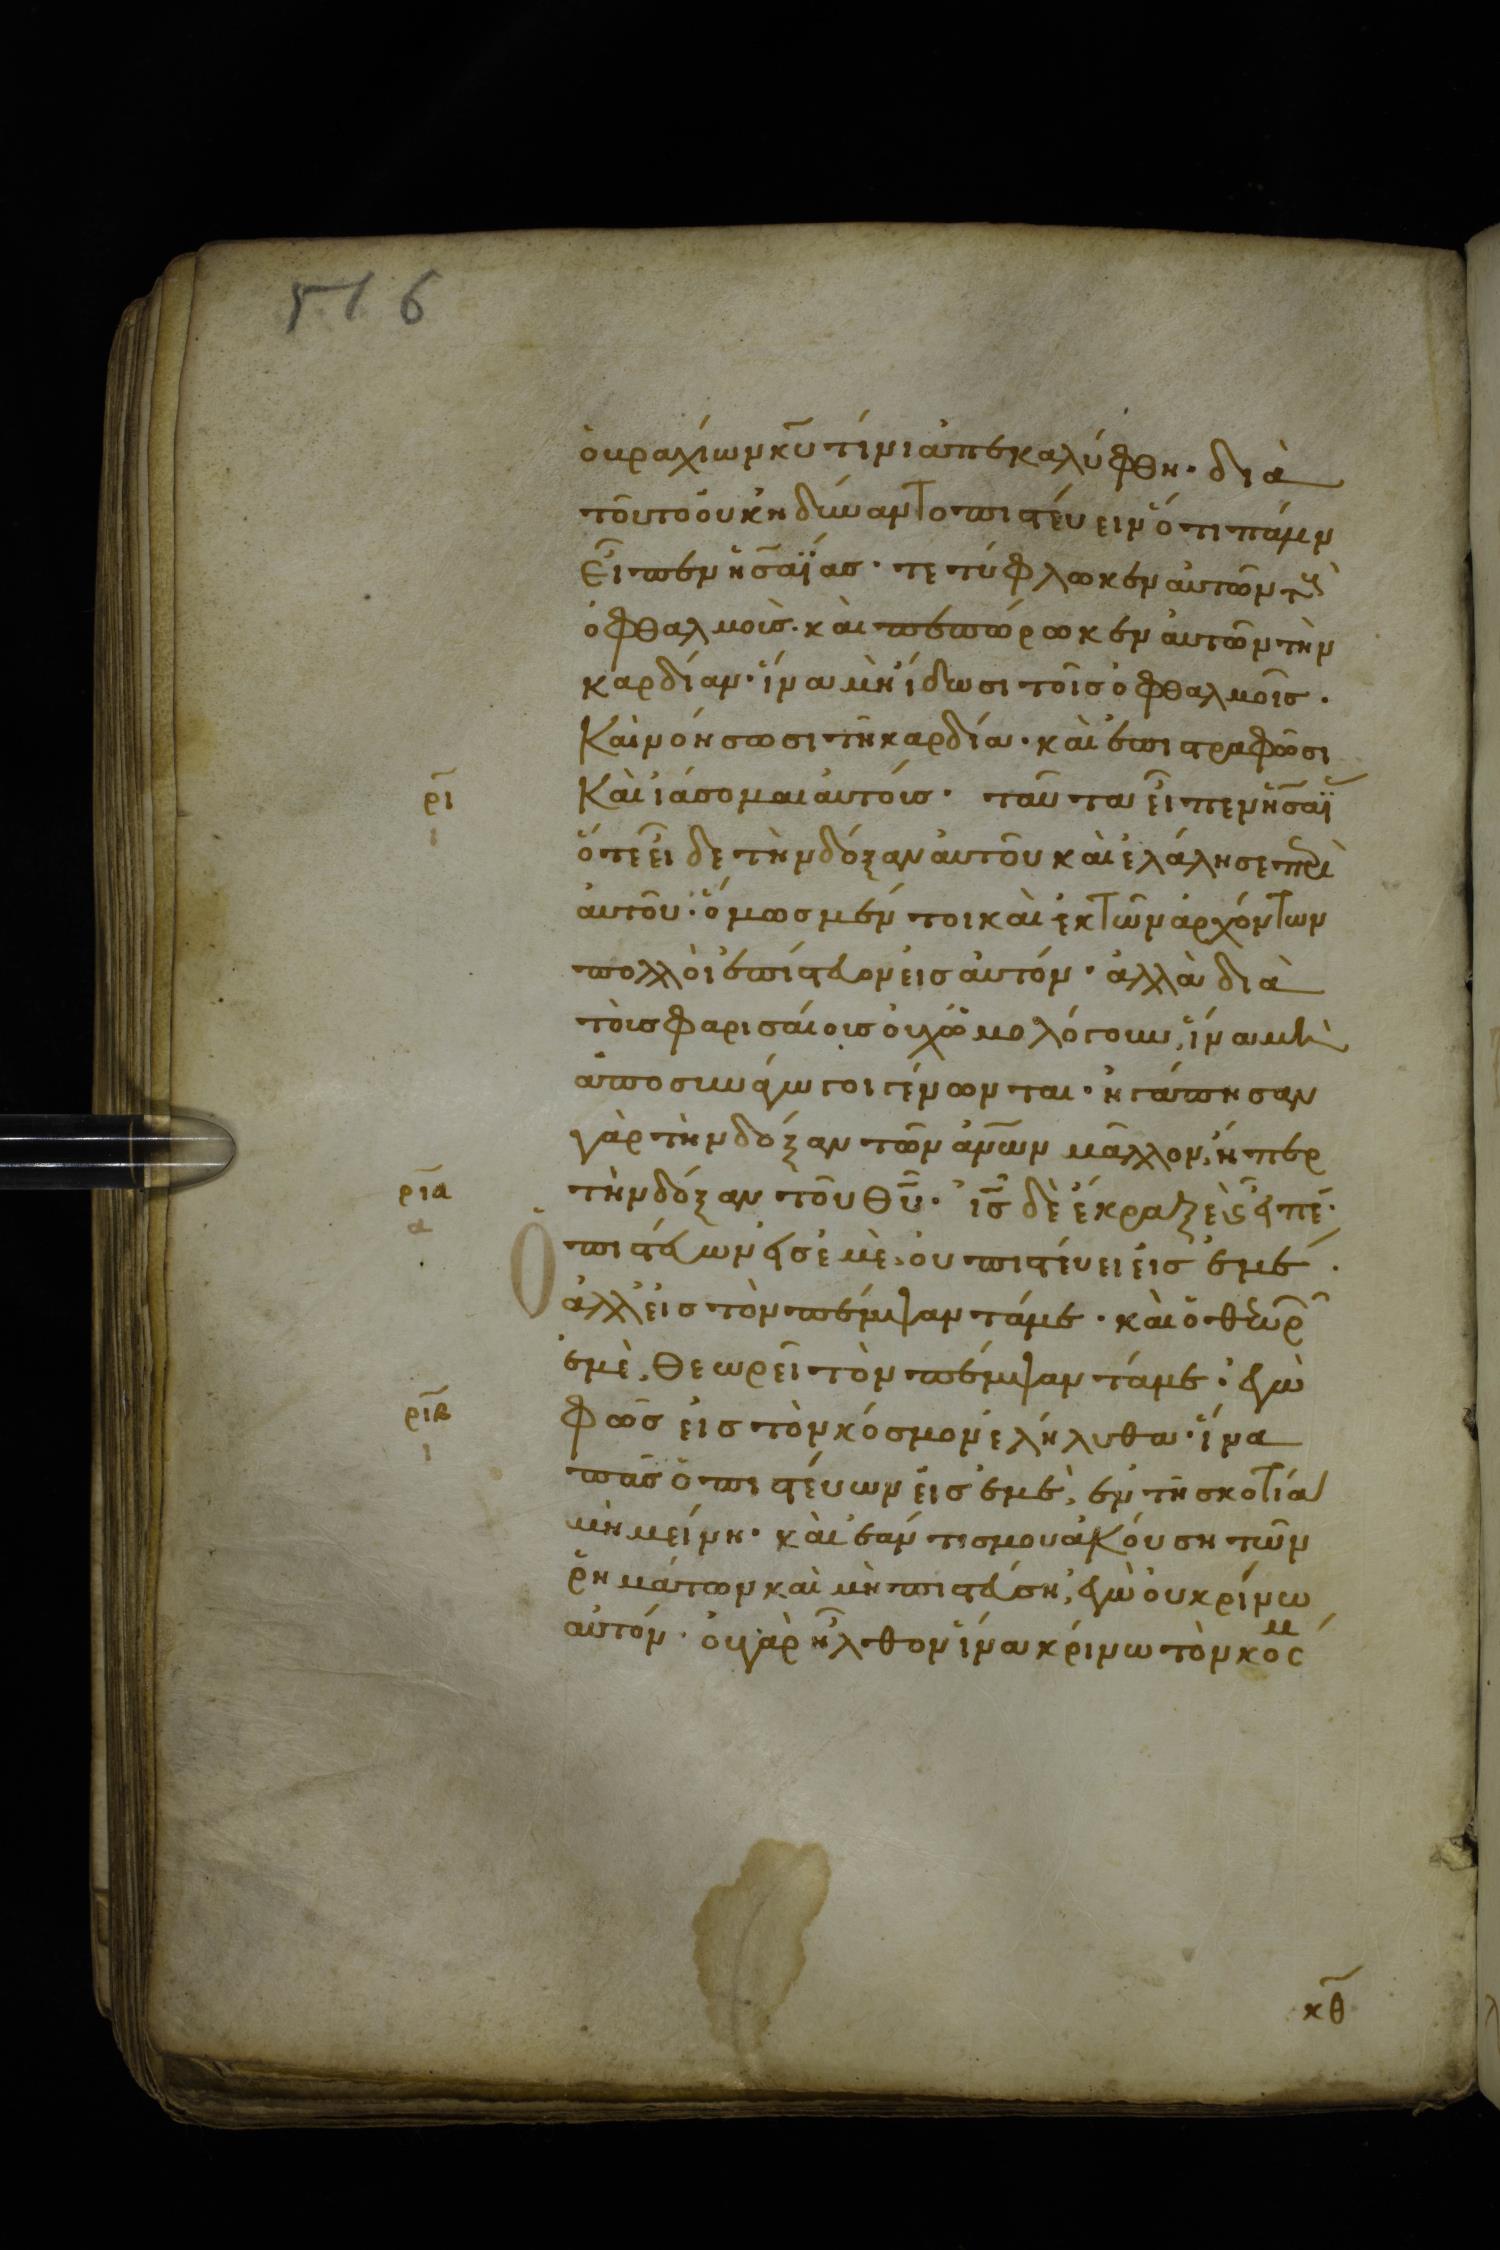 516
ὁ βραχίων κυ τίνι ἀπεκαλύφθη· διὰ
τοῦτο οὐκ ἠδύναντο πιστέυειν ὅτι πάλιν
Εἶπεν ἡσαΐας· τετύφλωκεν αὐτῶν τοὺς
ὀφθαλμοὺς· καὶ πεπώρωκεν αὐτῶν τὴν
καρδίαν· ἵνα μὴ ἴδωσι τοῖς ὀφθαλμοῖς·
Καὶ νοήσωσι τῆ καρδία· καὶ ἐπιστραφῶσι
Καὶ ἰάσομαι αὐτούς· ταῦτα εἶπεν ἡσαΐ
ρι
ι
ὅτε εἶδε τὴν δόξαν αὐτοῦ καὶ ἐλάλησε περὶ
αὐτοῦ· ὅμως μέντοι καὶ ἐκ τῶν ἀρχόντων
πολλοὶ ἐπίστευον εἰς αὐτόν· ἀλλὰ διὰ
τοὺς φαρισαίους οὐχ ὡμολόγουν, ἵνα μὴ
ἀποσυνάγωγοι γένωνται· ἠγάπησαν
γὰρ τὴν δόξαν τῶν ἀνῶν μᾶλλον, ἤπερ
τὴν δόξαν τοῦ θυ· ἰς δὲ ἔκραξε καὶ εἶπε·
ρια
α
Ὁ πιστεύων εἰς ἐμὲ, οὐ πιστέυει εἰς ἐμέ·
ἀλλ εἰς τὸν πέμψαντά με· καὶ ὁ θεωρ
ἐμὲ, θεωρεῖ τὸν πέμψαντά με· ἐγὼ
φῶς εἰς τὸν κόσμον ἐλήλυθα· ἵνα
ριβ
ι
πᾶς ὁ πιστέυων εἰς ἐμὲ, ἐν τῆ σκοτία
μὴ μείνη· καὶ ἐάν τις μου ἀκούση τῶν
ῥημάτων καὶ μὴ πιστεύση, ἐγὼ οὐ κρίνω
αὐτόν· οὐ γὰρ ἦλθον ἵνα κρίνω τὸν κοσμ
κθ